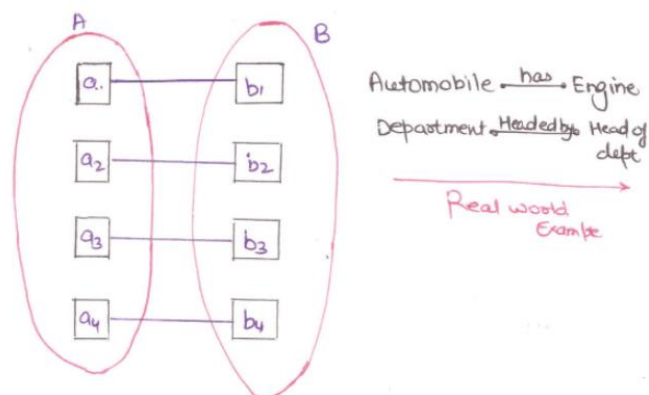 A
B
a..
b1
a2
b2
a3
b3
a4
b4
Automobile has Engine
Department Headed by Head of
dept
Real woold
Example